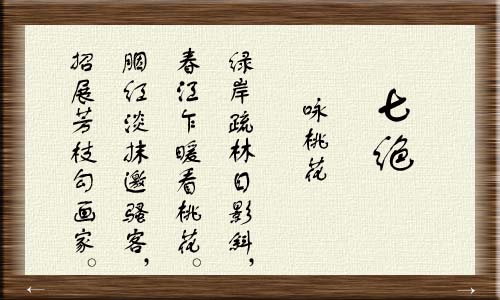 七绝
咏桃花
绿岸疏林日影斜，
春江乍暖看桃花。
胭红淡抹邀骚客，
招展芳枝勾画家。